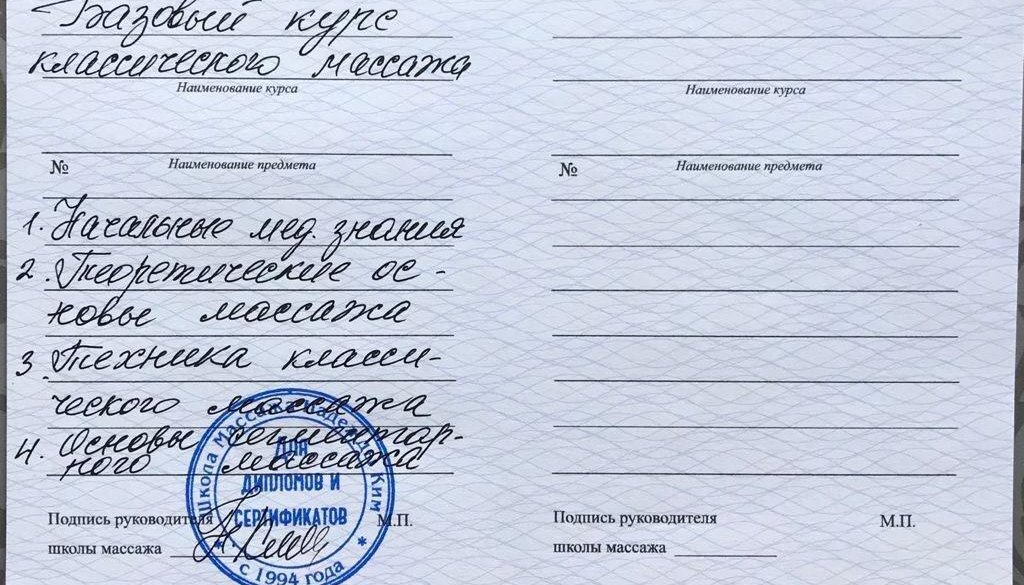 Базовый курс
классического массажа
Наименование курса
№ Наименование предмета
1. Начальные мед. знания
2. Теоретические ос-
новы массажа
3. Техника класси-
ческого массажа
4. Основы сегментар-
ного массажа
Школа Массажа Надежды Ким
Для
дипломов и
сертификатов
с 1994 года
Подпись руководителя М.П.
школы массажа
Наименование курса
№ Наименование предмета
Подпись руководителя М.П.
школы массажа